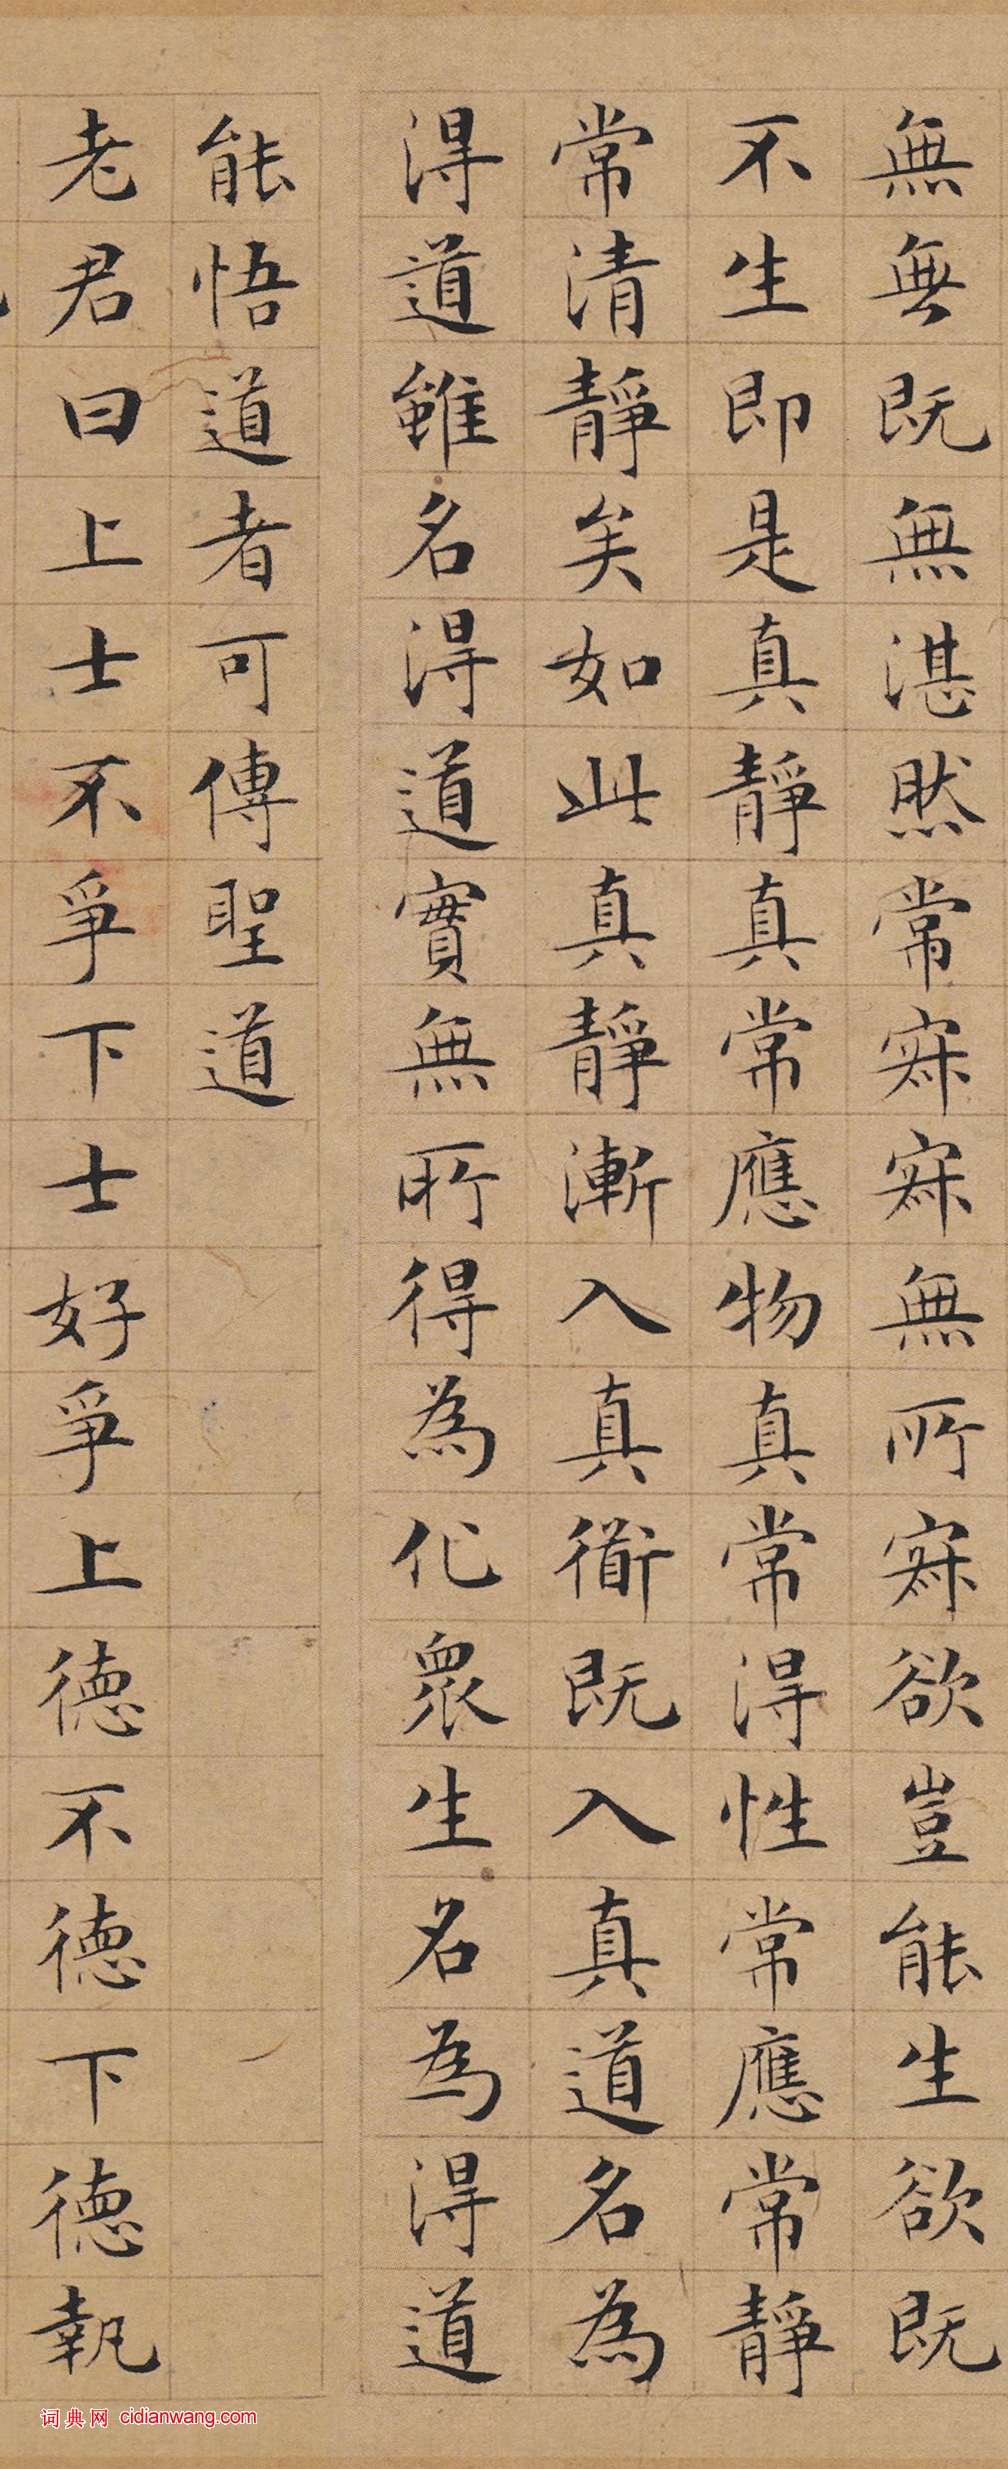 無無既無湛然常寂寂無所寂欲豈能生欲既
不生即是真靜真常應物真常得性常應常靜
常清靜矣如此真靜漸入真衜既入真道名為
得道雖名得道實無所得為化眾生名為得道
能悟道者可傳聖道
老君曰上士不爭下士好爭上德不德下德執
词典网 cidianwang.com